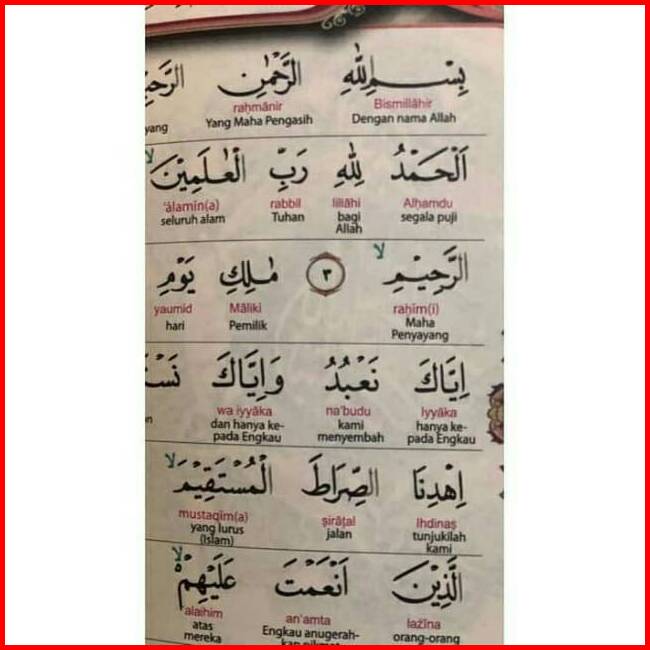 بِسْمِ اللهِ الرَّحْمٰنِ
Bismillāhir raḥmānir
Dengan nama Allah Yang Maha Pengasih yang
اَلْحَمْدُ لِلهِ رَبِّ الْعٰلَمِيْنَۙ
Alḥamdu lillāhi rabbil ‘ālamīn(a)
segala puji bagi Allah Tuhan seluruh alam
الرَّحِيْمِۙ ٣ مٰلِكِ يَوْمِ
raḥīm(i) Māliki yaumid
Maha Penyayang Pemilik hari
اِيَّاكَ نَعْبُدُ وَاِيَّاكَ
Iyyāka na‘budu wa iyyāka
hanya ke-pada Engkau kami menyembah dan hanya ke-pada Engkau
اِهْدِنَا الصِّرَاطَ الْمُسْتَقِيْمَۙ
Ihdinaṣ ṣirāṭal mustaqīm(a)
tunjukilah kami jalan yang lurus (Islam)
الَّذِيْنَ اَنْعَمْتَ عَلَيْهِمْۙ
lażīna an‘amta ‘alaihim
orang-orang Engkau anugerah- atas mereka